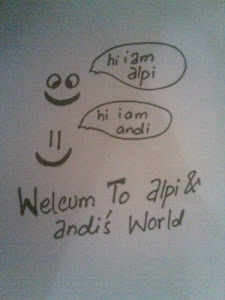 hi i am
alpi
hi i am
andi
Welcum To alpi &
andi's World